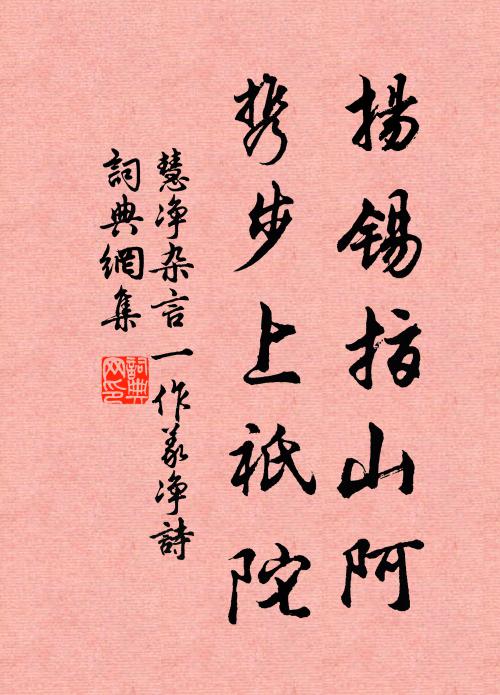 揚錫指山阿
携步上祇陀
慧净杂言一作義净詩
詞典網集
詞典网印